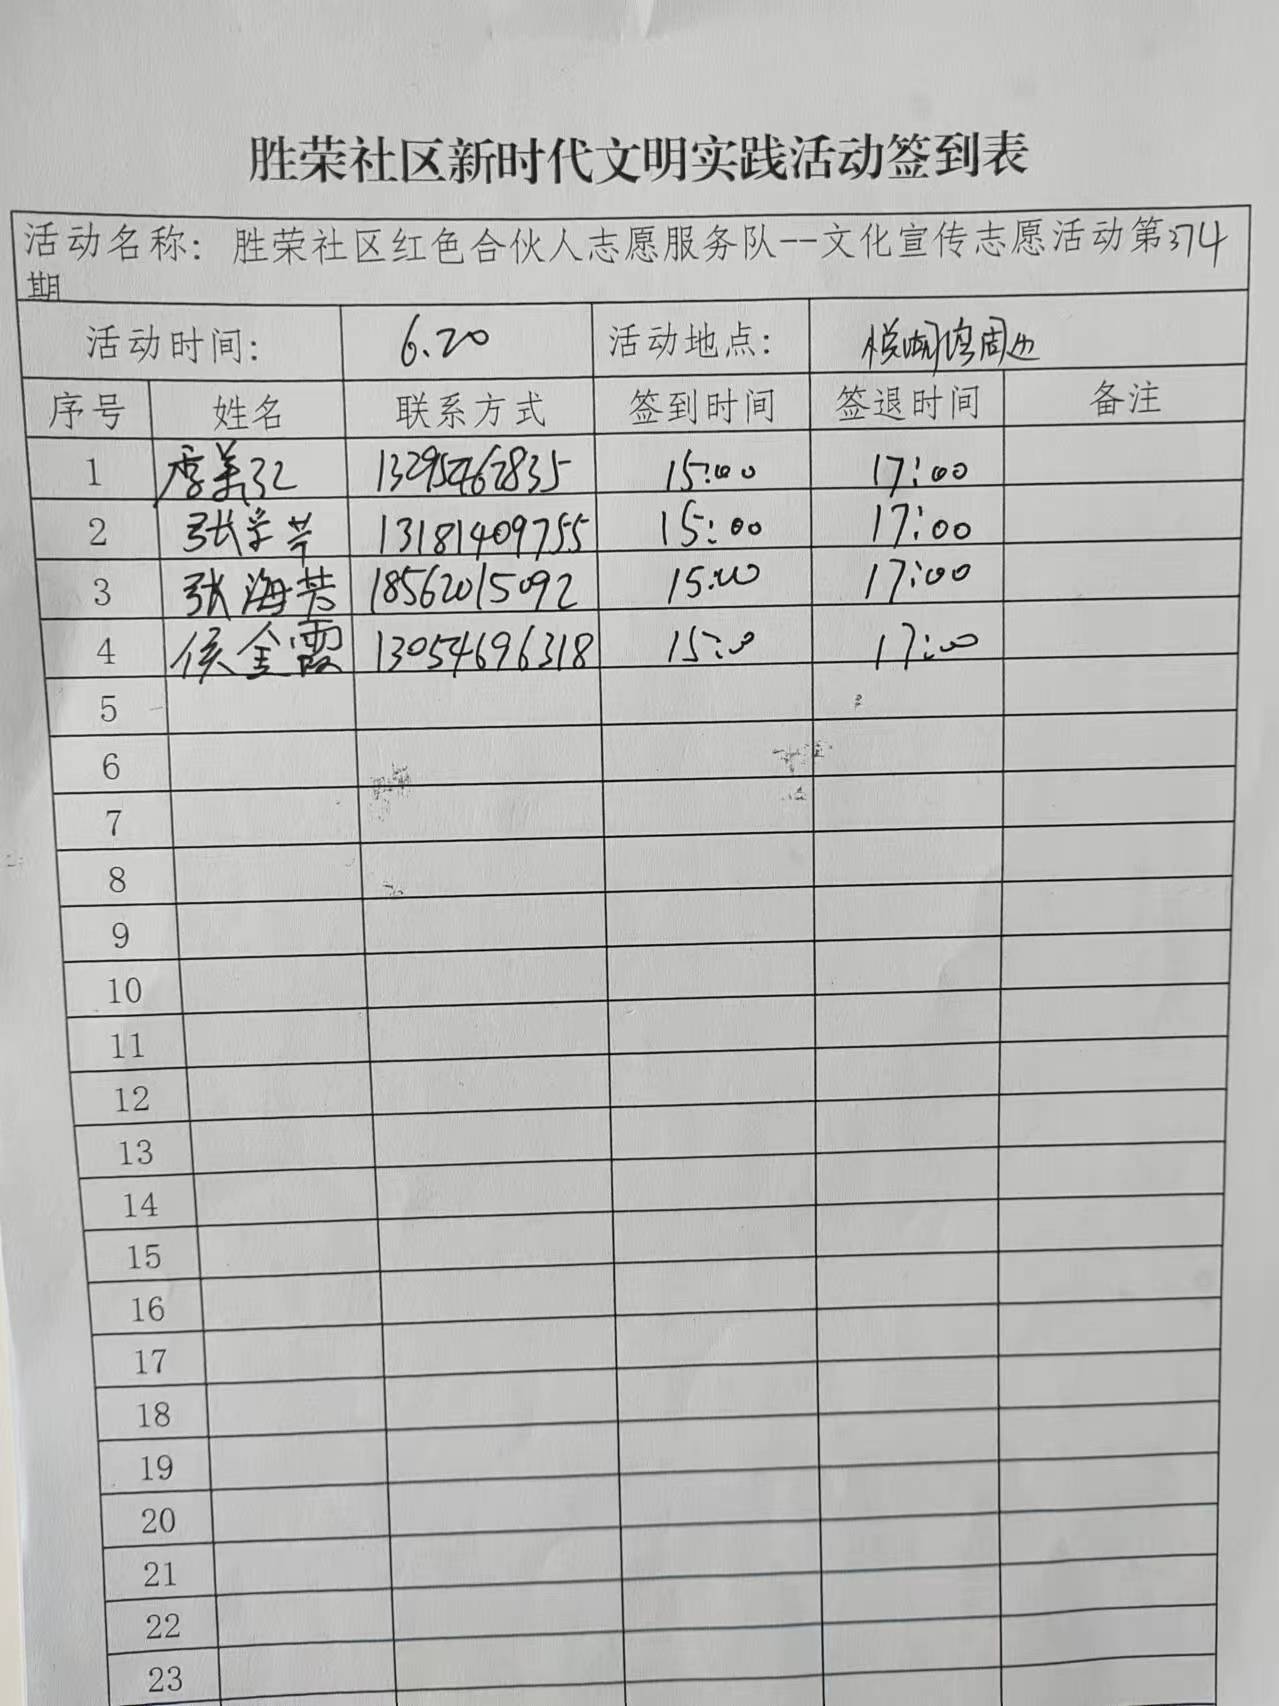 胜荣社区新时代文明实践活动签到表
活动名称：胜荣社区红色合伙人志愿服务队--文化宣传志愿活动第374
期
活动时间： 6.20 活动地点： 悦湖湾周边
序号 姓名 联系方式 签到时间 签退时间 备注
1 李美红 13295462835 15:00 17:00
2 张学芹 13181409755 15:00 17:00
3 张海芳 18562015092 15:00 17:00
4 侯金霞 13054696318 15:0 17:00
5
6
7
8
9
10
11
12
13
14
15
16
17
18
19
20
21
22
23